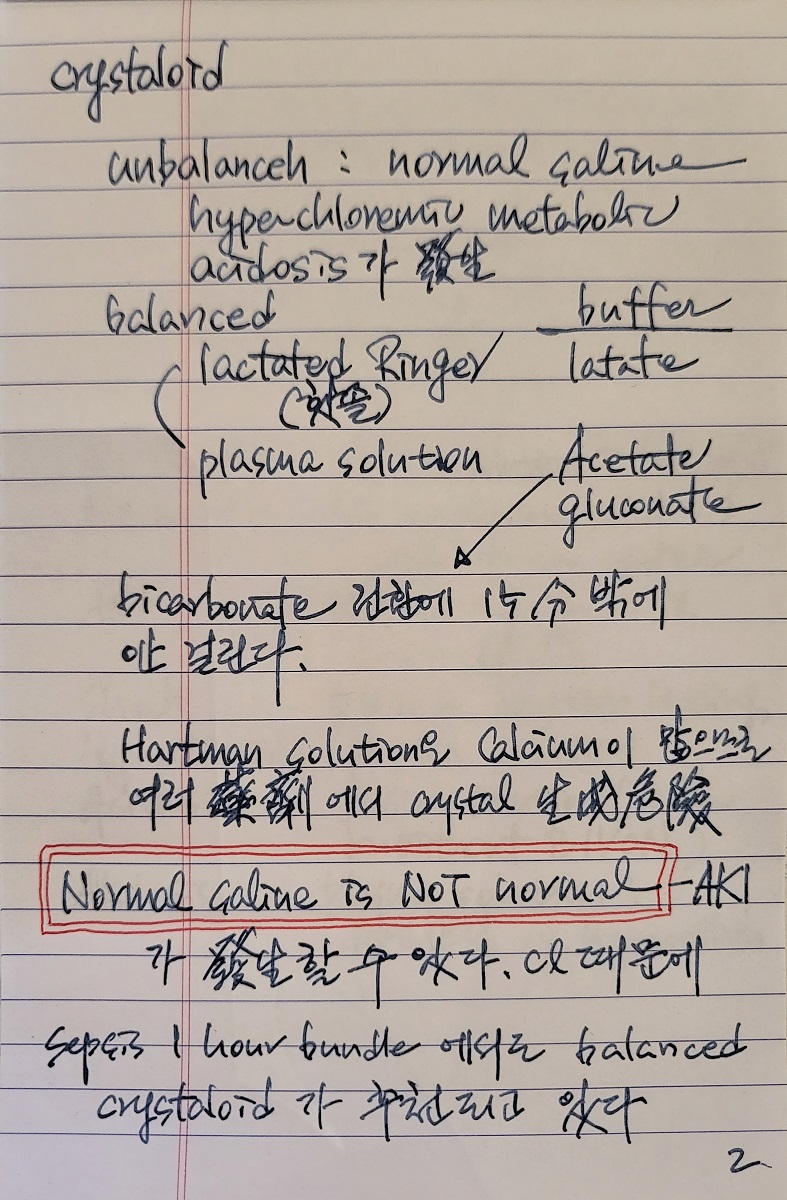 crystaloid
unbalanceh : normal saline
hyperchloremic metabolic
acidosis가 發生
balanced buffer
lactated Ringer latate
plasma solution Acetate
gluconate
bicarbonate 전환에 15分 밖에
안 걸린다.
Hartman solution은 Calcium이 많으므로
여러 藥劑에서 crystal 生成危險
Normal saline is NOT normal - AKI
가 發生할 수 있다. Cl 때문에
sepsis 1 hour bundle 에서도 balanced
crystaloid 가 추천되고 있다
2